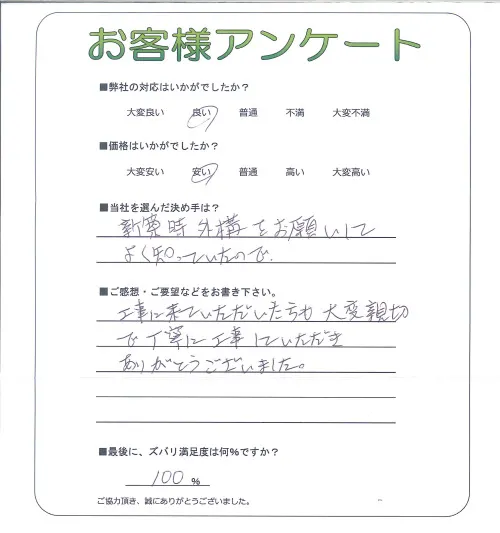 お客様アンケート
■弊社の対応はいかがでしたか？
大変良い 良い 普通 不満 大変不満
■価格はいかがでしたか？
大変安い 安い 普通 高い 大変高い
■当社を選んだ決め手は？
新築時外構をお願いして
よく知っていたので.
■ご感想・ご要望などをお書き下さい。
工事に来ていただいた方も大変親切
で丁寧に工事していただき
ありがとうございました。
■最後に、ズバリ満足度は何%ですか？
100 %
ご協力頂き、誠にありがとうございました。